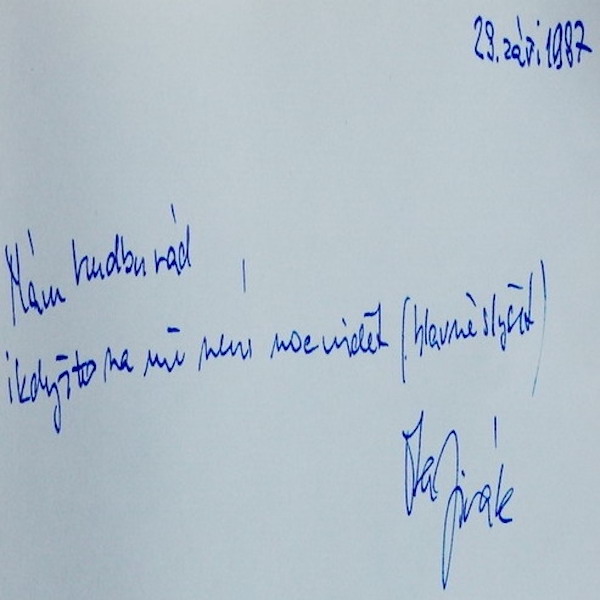 29. září 1987
Mám hudbu rád
i když to na mě není moc vidět (hlavně slyšet)
Jirák